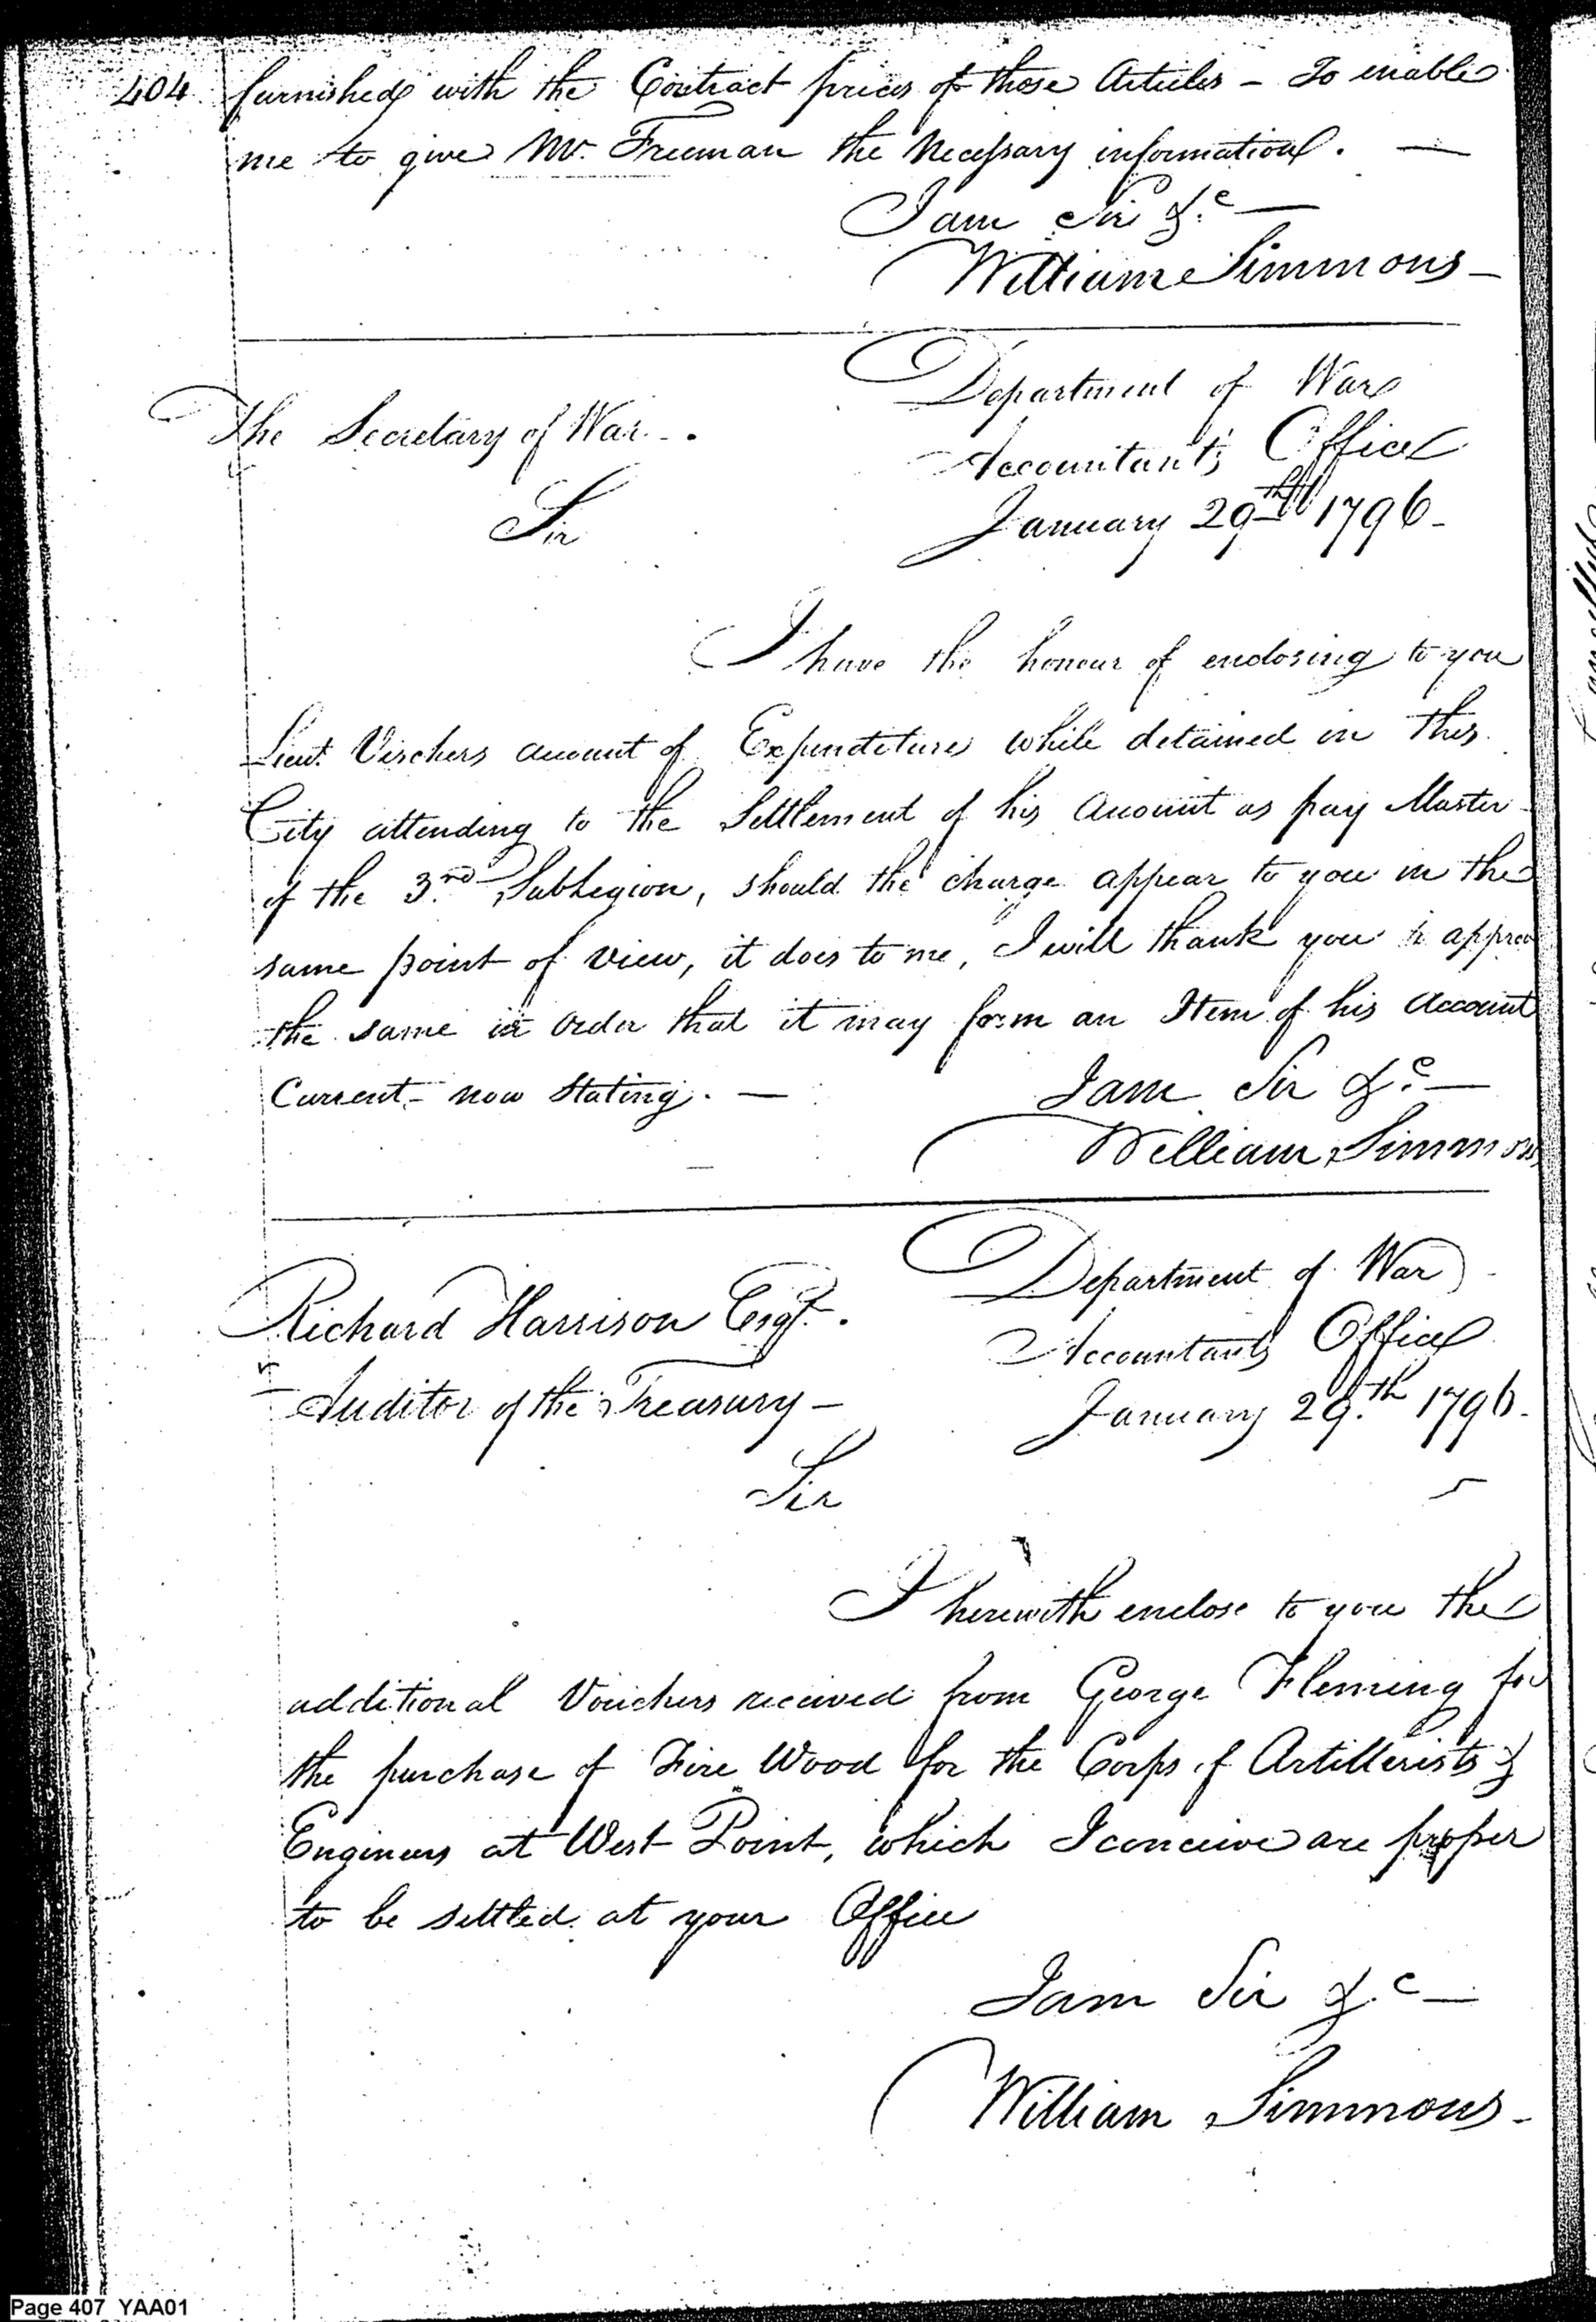 404
furnished with the Contract prices of those Articles - To enable
me to give Mr. Freeman the Necessary information. —
I am Sir &c —
William Simmons -
Department of War
The Secretary of War -.
Accountant's Office
January 29th 1796 -
Sir
I have the honour of enclosing to you
Lieut. Vischers account of Expenditure while detained in this
City attending to the Settlement of his Account as pay Master
of the 3rd SubLegion, should the charge appear to you in the
same point of view, it does to me, I will thank you to
the same in order that it may form an Item of his Account
Current - now Stating. —
I am Sir &c —
William Simmons
Department of War
Richard Harrison Esqr.
Accountants Office
Auditor of the Treasury -
January 29th 1796 -
Sir
I herewith enclose to you the
additional Vouchers received from George Fleming for
the purchase of Fire Wood for the Corps of Artillerists &
Engineers at West Point, which I conceive are proper
to be settled at your Office
I am Sir &c —
William Simmons -
Page 407 YAA01